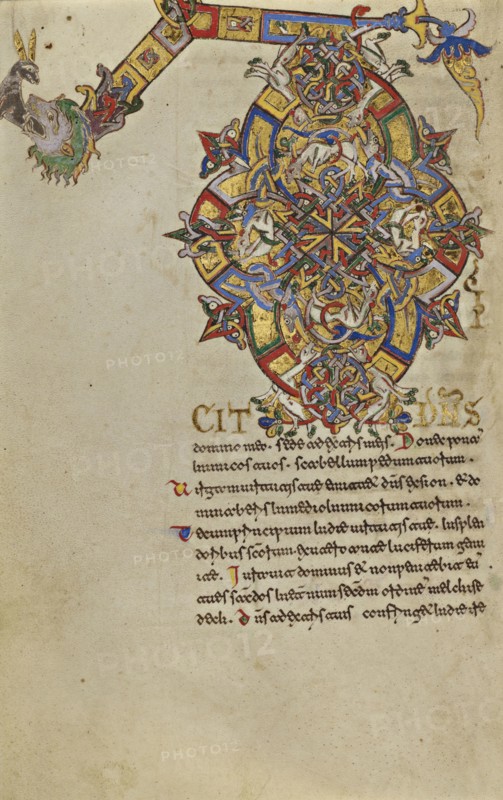 CIT DNS
domino meo · sede ad extris meis · Donec ponā
inimicos tuos · scabellum pedum tuorum ·
Virgam virtutis tue emittet dns ex sion · et do
minare in medio inimicorum tuorum ·
Tecum principium in die virtutis tue · in splen
doribus scorum · ex utero ante luciferum genu
ite · Iuravit dominus et non penitebit eū
tu es sacdos in etnum scdm ordinē melchise
dech · Dns ad extris tuis confregit in die ire
PHOTO12